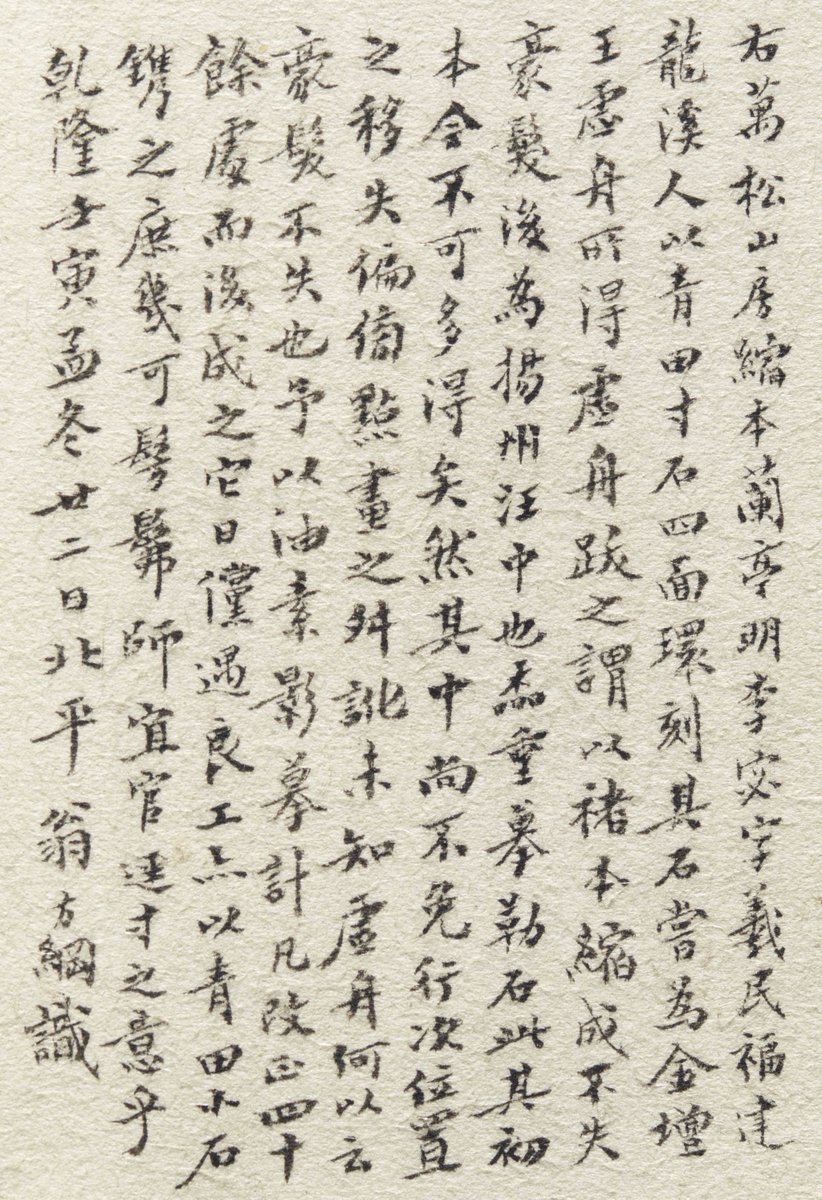 右萬松山房縮本蘭亭明李宓字羲民福建
龍溪人以青田寸石四面環刻其石嘗為金壇
王虛舟所得虛舟跋之謂以褚本縮成不失
豪髮後為揚州汪中也杰重摹勒石此其初
本今不可多得矣然其中尚不免行次位置
之移失偏傍點畫之舛訛未知虛舟何以云
豪髮不失也予以油素影摹計凡改正四十
餘處而後成之它日儻遇良工亦以青田小石
鐫之庶幾可髣髴師宜官徑寸之意乎
乾隆壬寅孟冬廿二日北平翁方綱識